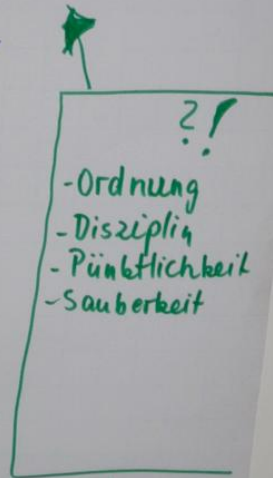 ?!
-Ordnung
-Disziplin
-Pünktlichkeit
-Sauberkeit